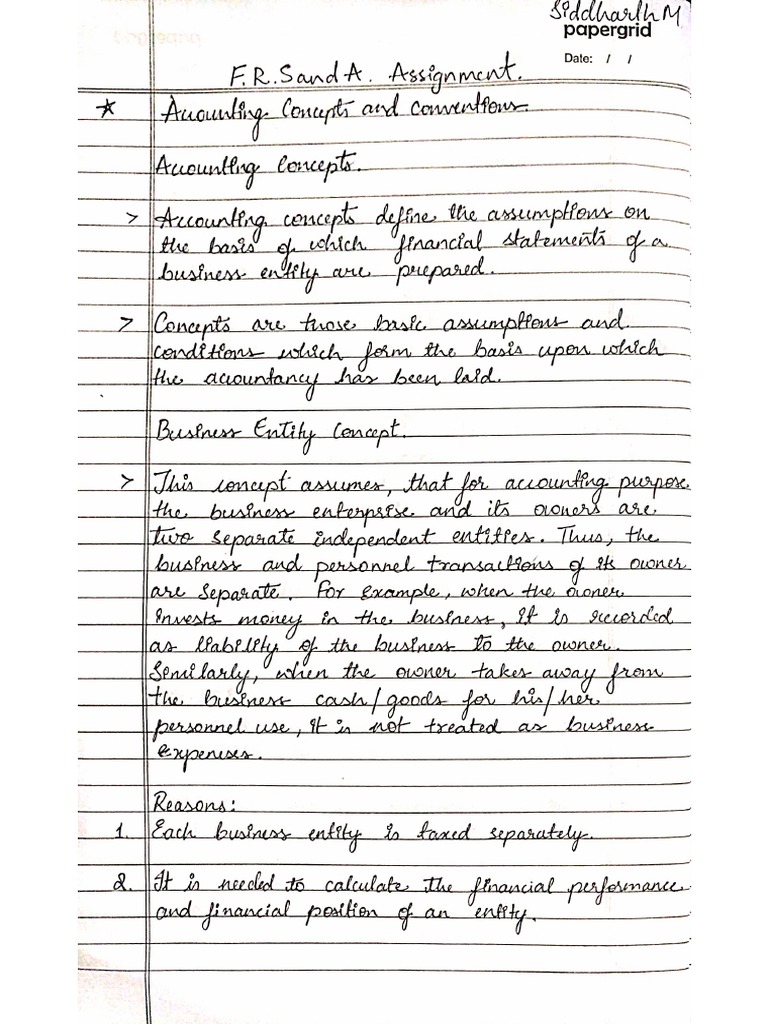 Siddharth M
papergrid
Date: / /
F.R.S and A. Assignment.
* Accounting Concepts and conventions.
Accounting Concepts.
> Accounting concepts define the assumptions on
the basis of which financial statements of a
business entity are prepared.
> Concepts are those basic assumptions and
conditions which form the basis upon which
the accountancy has been laid.
Business Entity Concept.
> This concept assumes, that for accounting purpose
the business enterprise and its owners are
two separate independent entities. Thus, the
business and personnel transactions of its owner
are separate. For example, when the owner
invests money in the business, it is recorded
as liability of the business to the owner.
Similarly, when the owner takes away from
the business cash/goods for his/her
personnel use, it is not treated as business
expenses.
Reasons:
1. Each business entity is taxed separately.
2. It is needed to calculate the financial performance
and financial position of an entity.